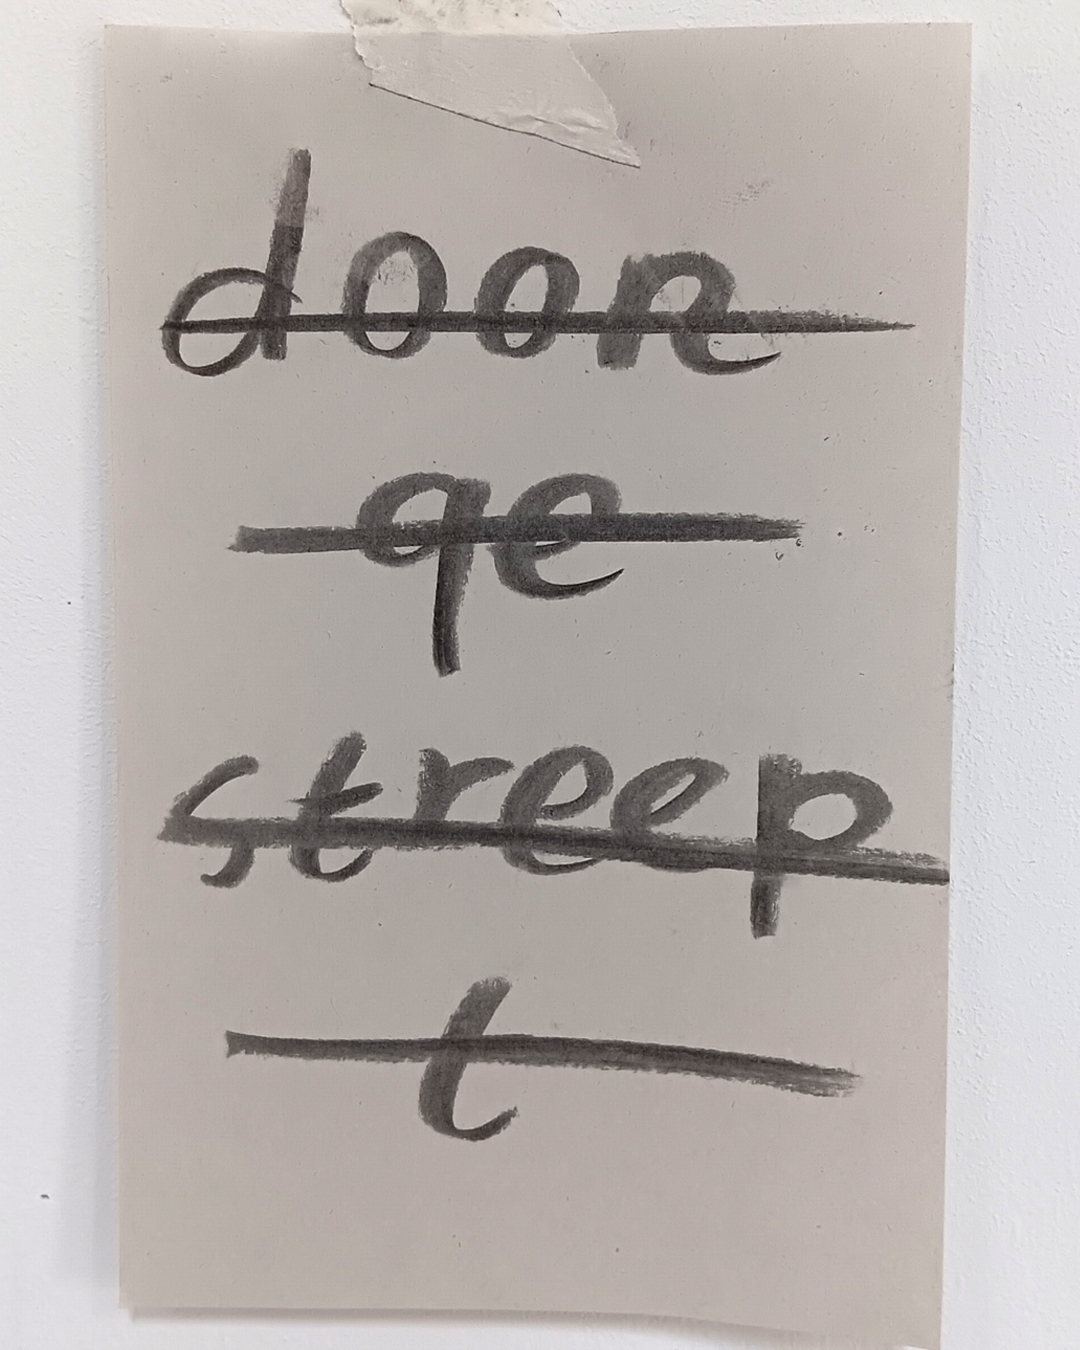 doon
qe
streep
t